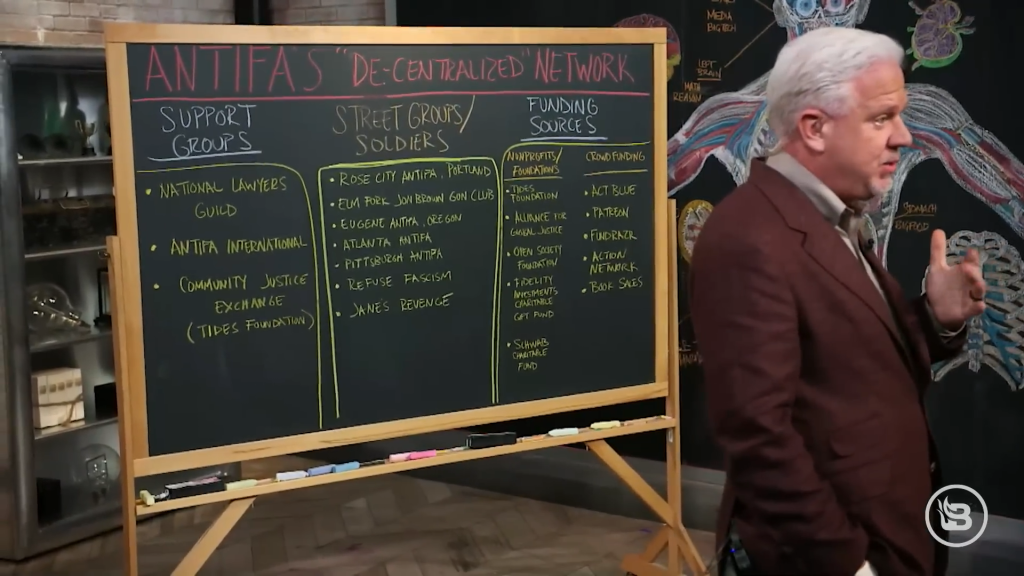 ANTIFAS "DE-CENTRALIZED" NETWORK
SUPPORT
GROUPS
• NATIONAL LAWYERS
GUILD
• ANTIFA INTERNATIONAL
• COMMUNITY JUSTICE
EXCHANGE
(TIDES FOUNDATION)
STREET GROUPS/
SOLDIERS
• ROSE CITY ANTIFA, PORTLAND
• ELM FORK JON BROWN GUN CLUB
• EUGENE ANTIFA, OREGON
• ATLANTA ANTIFA
• PITTSBURGH ANTIFA
• REFUSE FASCISM
• JANE'S REVENGE
FUNDING
SOURCES
NONPROFITS/
FOUNDATIONS
• TIDES
FOUNDATION
• ALLIANCE FOR
GLOBAL JUSTICE
• OPEN SOCIETY
FOUNDATION/
• FIDELITY
INVESTMENTS
CHARITABLE
GIFT FUND
• SCHWAB
CHARITABLE
FUND
CROWDFUNDING
• ACT BLUE
• PATREON
• FUNDRAZR
• ACTION
NETWORK
• BOOK SALES
MEDIA
BIG TECH
LEFT
BRAIN
MATH
REASON
STOMACH
BIG FOOD
B